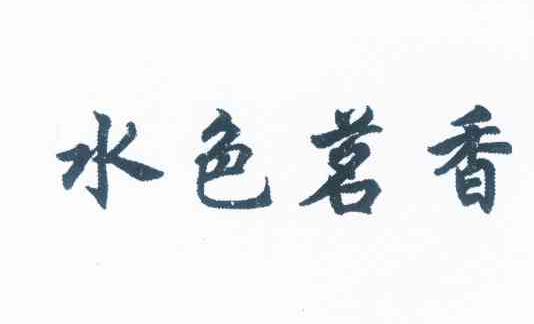 水色茗香